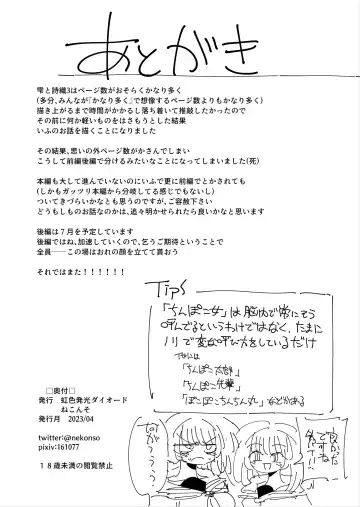 あとがき
雫と詩織3はページ数がおそらくかなり多く
(多分、みんなが「かなり多く」で想像するページ数よりもかなり多く)
描き上がるまで時間がかかるし落ち着いて推敲したかったので
その前に何か軽いものをはさもうとした結果
いふのお話を描くことになりました
その結果、思いの外ページ数がかさんでしまい
こうして前編後編で分けるみたいなことになってしまいました(死)
本編も大して進んでいないのにいふで更に前編でとかされても
(しかもガッツリ本編から分岐してる感じでもないし)
ついてきづらいかなとも思うのですが、ご容赦下さい
どうしもしものお話なのかは、追々明かせられたら良いかなと思います
後編は7月を予定しています
後編ではね、加速していくので、乞うご期待ということで
全員――この場はおれの顔を立てて貰おう
それではまた!!!!!!
Tips
「ちんぽこ女」は脳内で常にそう
呼んでるというわけではなく、たまに
ノリで変な呼び方をしているだけ
他には
「ちんぽこ太郎」
「ちんぽこ先輩」
「ぽこぽこちんちん丸」などがある
□奥付□
発行 虹色発光ダイオード
ねこんそ
発行月 2023/04
twitter:@nekonso
pixiv:161077
18歳未満の閲覧禁止
良かった
ですね
何がっ…?